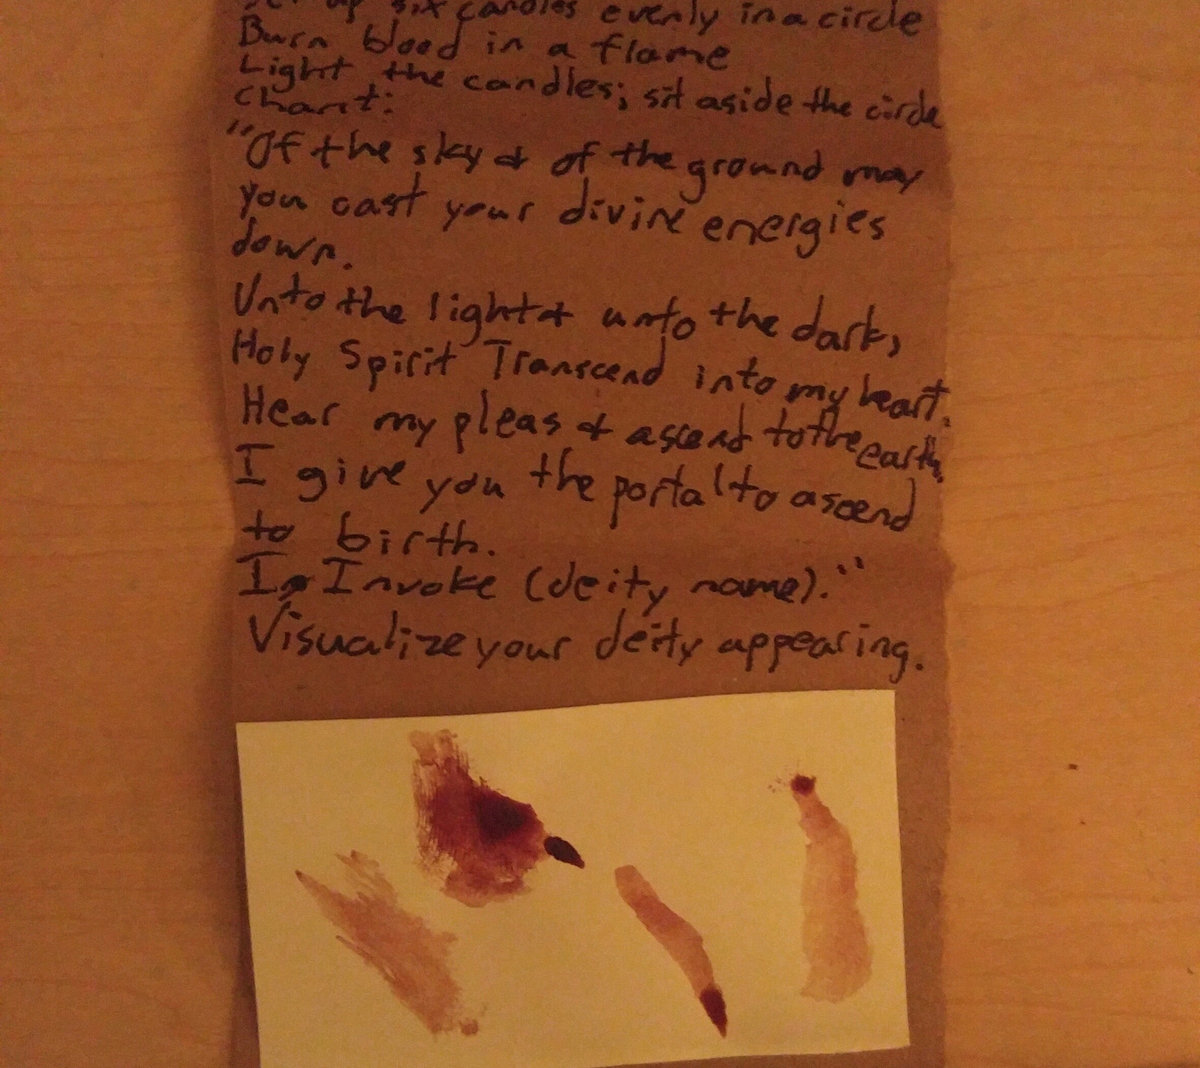 Set up six candles evenly in a circle
Burn blood in a flame
Light the candles; sit aside the circle
Chant:
"Of the sky & of the ground may
you cast your divine energies
down.
Unto the light & unto the dark,
Holy Spirit Transcend into my heart.
Hear my pleas & ascend to the earth,
I give you the portal to ascend
to birth.
I, Invoke (deity name)."
Visualize your deity appearing.